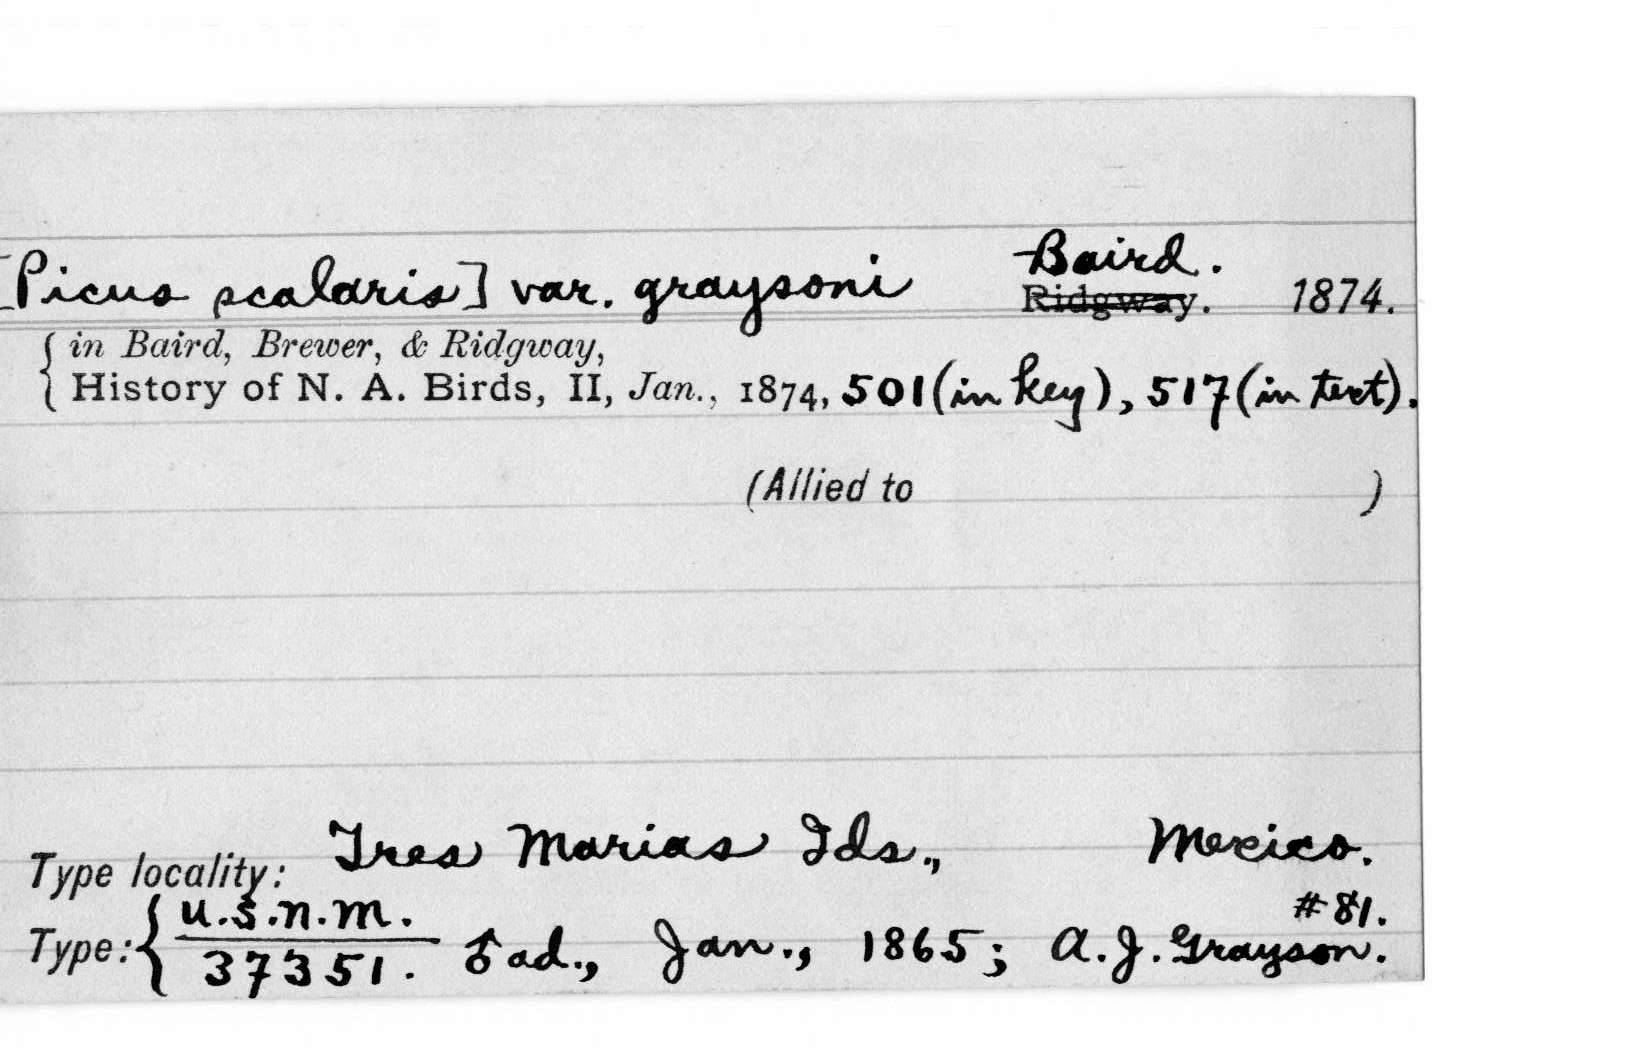 [Picus scalaris] var. graysoni Baird. Ridgway. 1874.
in Baird, Brewer, & Ridgway,
History of N. A. Birds, II, Jan., 1874, 501 (in key), 517 (in text).
(Allied to )
Type locality: Tres Marias Ids., Mexico.
Type: U.S.N.M. 37351. ♂ ad., Jan., 1865; A. J. Grayson. #81.